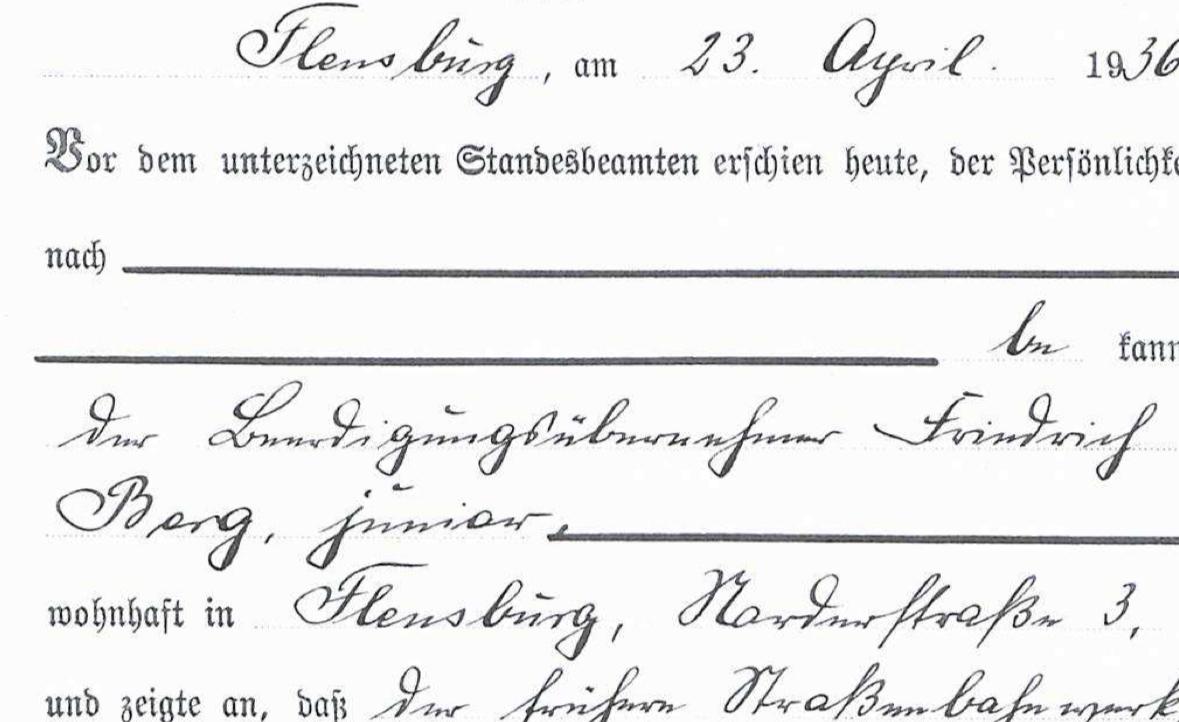 Flensburg, am 23. April 1936
Vor dem unterzeichneten Standesbeamten erschien heute, der Persönlichke
nach
be kann
der Beerdigungsübernehmer Friedrich
Berg, junior,
wohnhaft in Flensburg, Norderstraße 3,
und zeigte an, daß der frühere Straßenbahnwerk